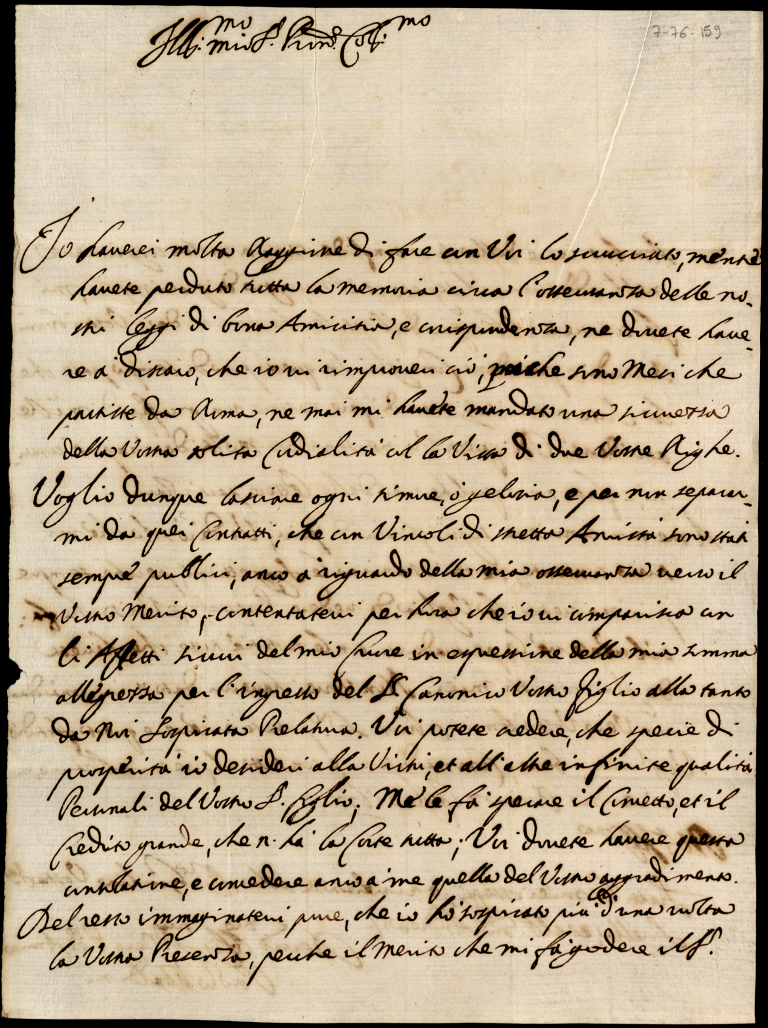 7-76-159
Ill.mo mio S.r Pron. Col.mo
Io haverei molta Raggione di fare con Voi lo scucciato, mentre
havete perduto tutta la memoria circa l'osservanza delle no-
stri leggi di bona Amicitia, e corispondenza, ne dovete have-
re à discaro, che io vi rimproveri ciò, poiche sono Mesi che
partiste da Roma, ne mai mi havete mandato una sicurezza
della Vostra solita Cordialità col la Vista di due Vostre Righe.
Voglio dunque lasciare ogni timore, ò gelosia, e per non separar-
mi da quei Contratti, che con Vincoli di stretta Amistà sono stati
sempre publici, anco à riguardo della mia osservanza verso il
Vostro Merito, contentatevi per hora che io vi comparisca con
li Affetti sicuri del mio Cuore in espressione della mia somma
allegrezza per l'ingresso del S.r Canonico Vostro figlio alla tanto
da Noi sospirata Prelatura. Voi potete credere, che specie di
prosperità io desideri alla Virtù, et all'altre infinite qualità
Personali del Vostro S.r figlio; Me le fa sperare il Concetto, et il
Credito grande, che n. hà la Corte tutta; Voi dovete havere questa
consolatione, e concedere anco a me quella del Vostro aggradimento.
Del resto immaginatevi pure, che io hò sospirato più d'una volta
la Vostra Presenza, perche il Merito che mi fà godere il S.r